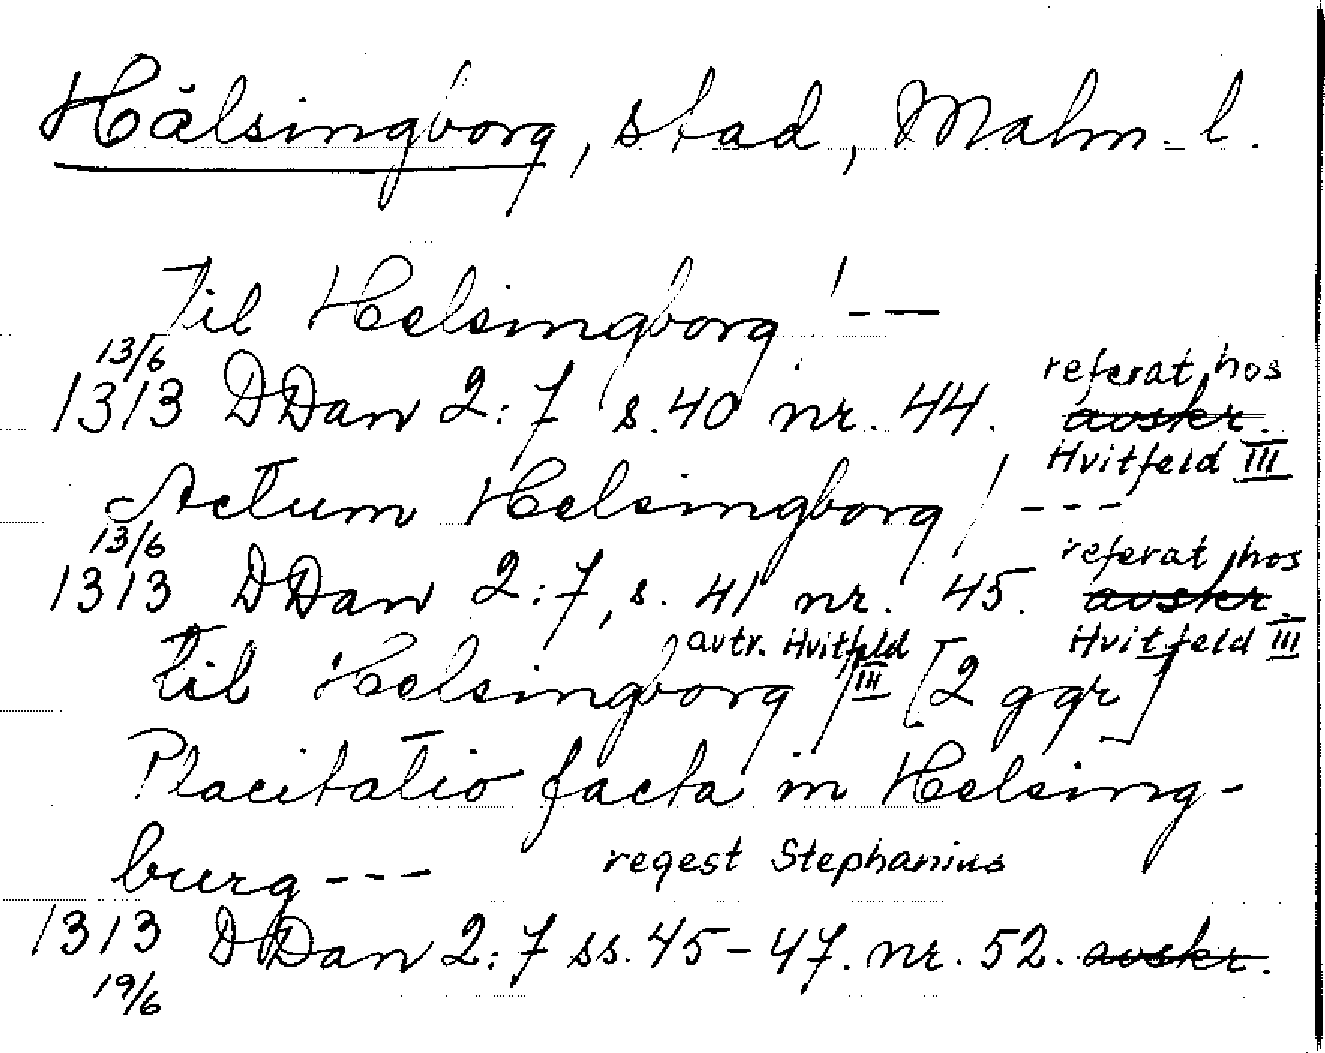 Hälsingborg, stad, Malm. l.
Til Helsingborg / - - -
13/6 referat hos
1313 DDan 2:7 s. 40 nr. 44. avskr.
Hvitfeld III
Actum Helsingborg / - - -
13/6 referat hos
1313 DDan 2:7, s. 41 nr. 45. avskr.
avtr. Hvitfeld III Hvitfeld III
Til Helsingborg / [2 ggr]
Placitatio facta in Helsing-
burg - - - regest Stephanius
1313 DDan 2:7 ss. 45-47. nr. 52. avskr.
19/6